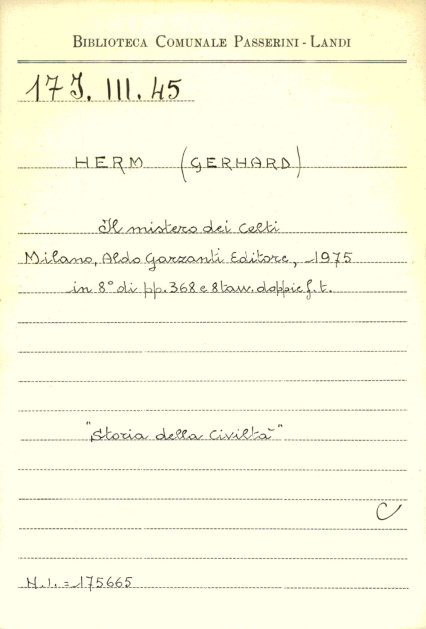 BIBLIOTECA COMUNALE PASSERINI - LANDI
17 J. III. 45
HERM (GERHARD)
Il mistero dei Celti
Milano, Aldo Garzanti Editore, 1975
in 8° di pp. 368 e 8 tav. doppie f. t.
"Storia della Civiltà"
C
N.I. = 175665